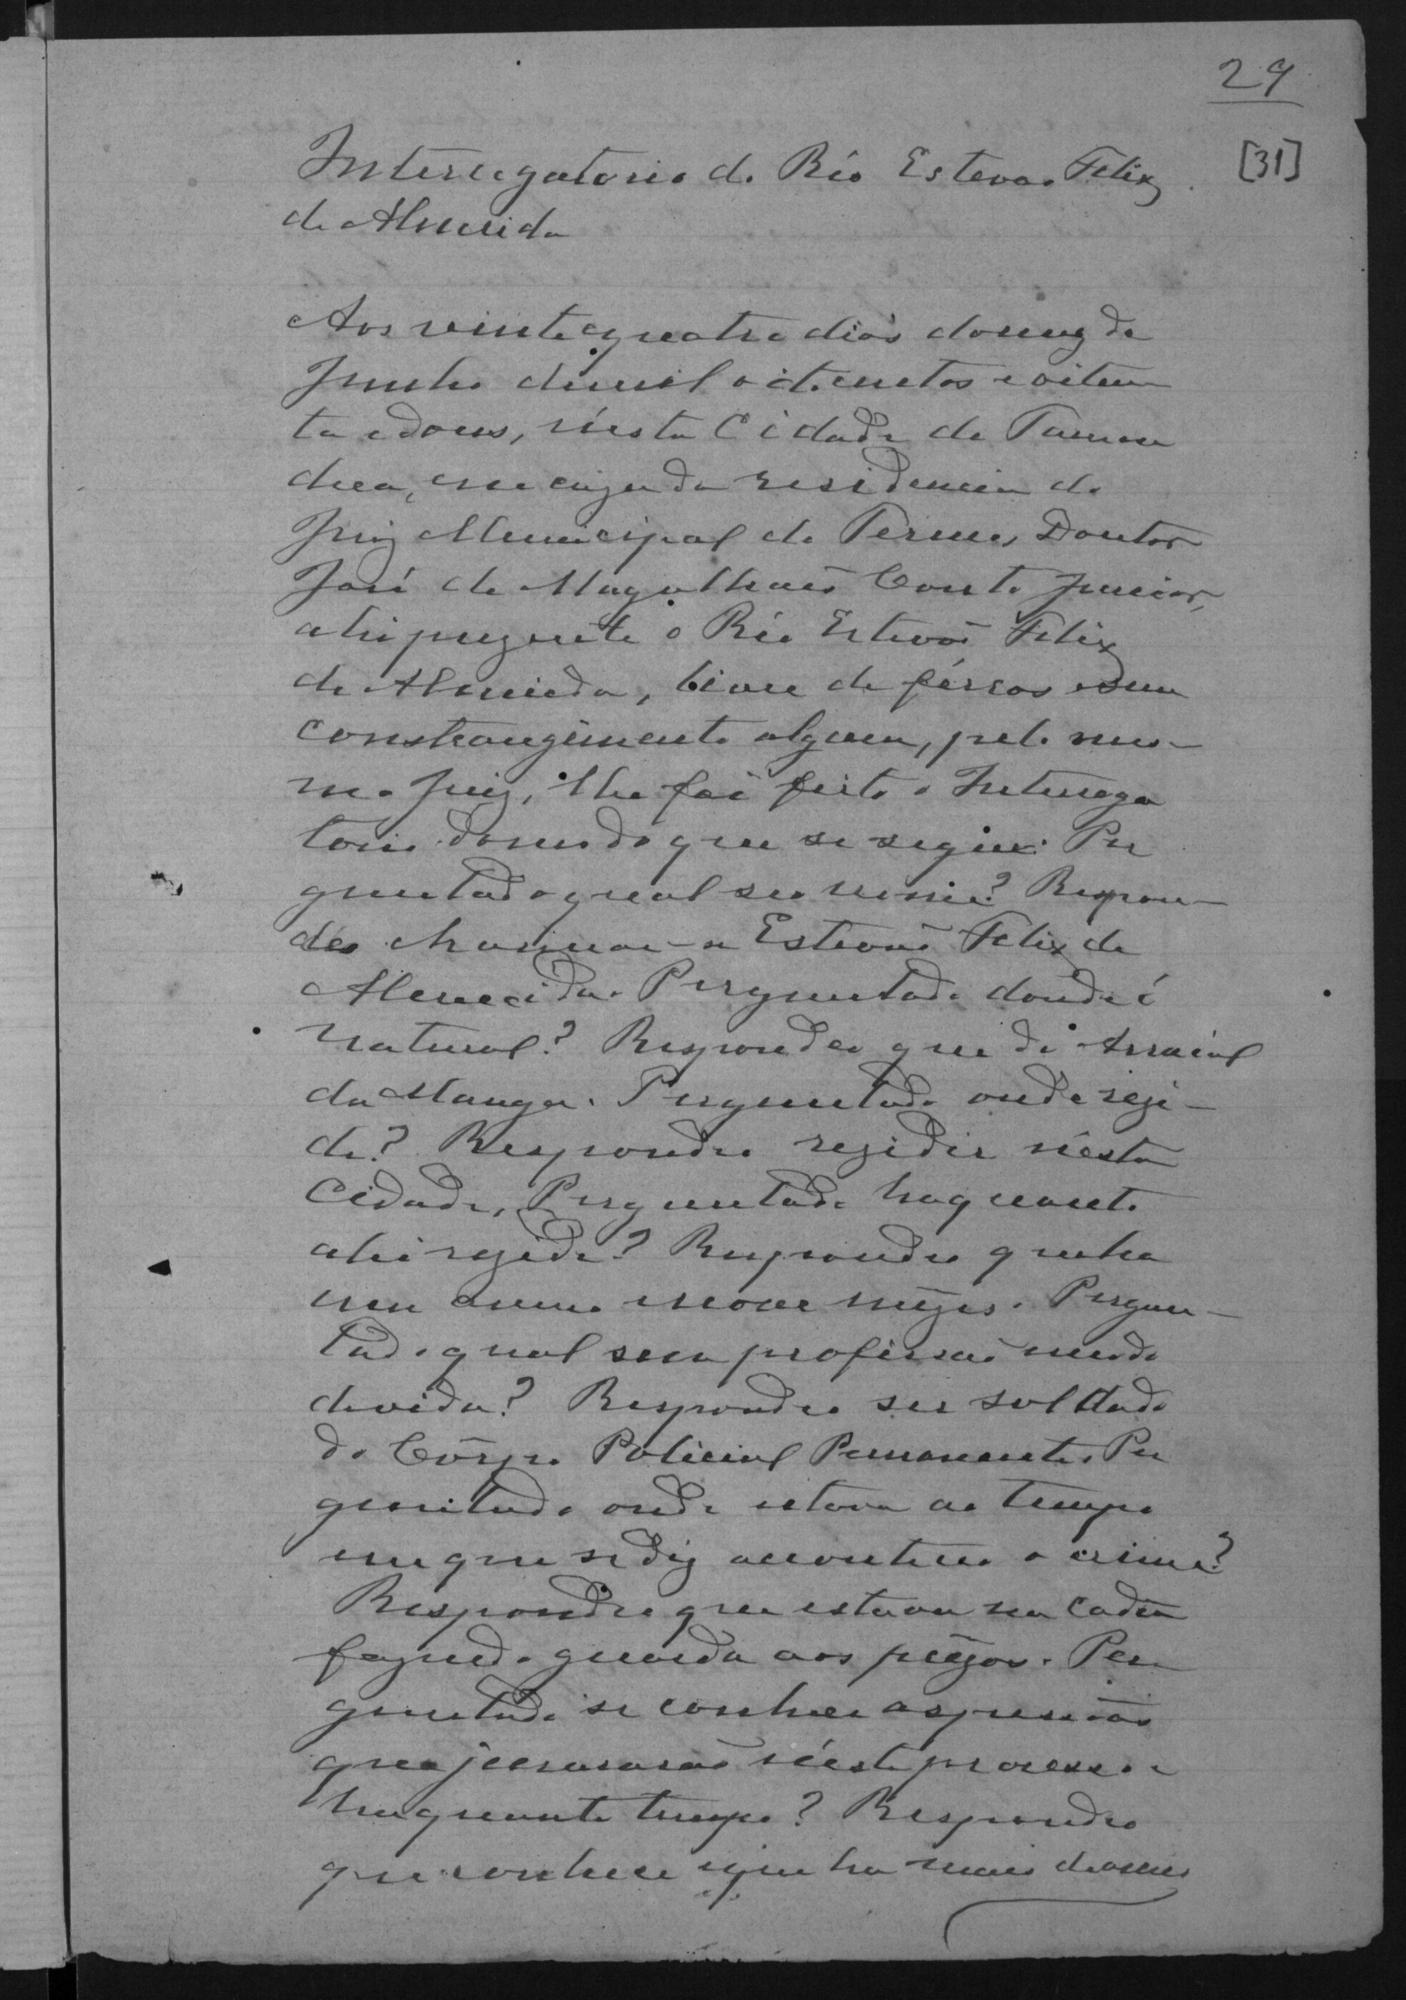 29
[31]
Interrogatorio do Réo Estevão Felix
de Almeida
Aos vinte e quatro dias do mez de
Junho de mil oitocentos e oiten
ta e dous, n'esta Cidade de Taman
dua, em caza da residencia do
Juiz Municipal do Termo, Doutor
José de Magalhães Couto Junior,
ahi prezente o Réo Estevão Felix
de Almeida, livre de férros e sem
constrangimento algum, pelo mes-
mo Juiz, lhe foi feito o Interroga
torio do modo que se segue: Per
guntado qual seo nome? Respon-
deo chamar-se Estevão Felix de
Almeida. Perguntado donde é
natural? Respondeo que do Arraial
da Manga. Perguntado onde rezi-
de? Respondeo rezidir n'esta
Cidade, Perguntado ha quanto
ahi rezide? Respondeo que ha
um anno e nove mezes. Pergun-
tado qual sua profissão e modo
de vida? Respondeo ser soldado
do Côrpo Policial Permanente. Per
guntado onde estava ao tempo
em que se diz aconteceo o crime?
Respondeo que estava na cadea
fazendo guarda aos prezos. Per
guntado se conhece as pessoas
que jurarão n'este processo e
ha quanto tempo? Respondeo
que conhece e que ha mais de